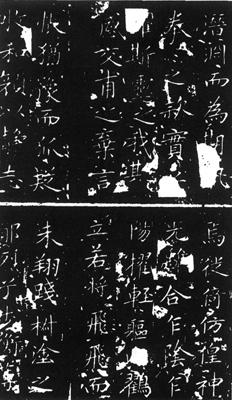 潛淵而為期執
眷之款實
懼斯靈之我欺
感交甫之棄言
悵猶豫而狐疑
收和顏靜志
焉徙倚仿偟神
光合乍陰乍
陽擢輕軀鶴
立若將飛飛而
未翔踐椒塗之